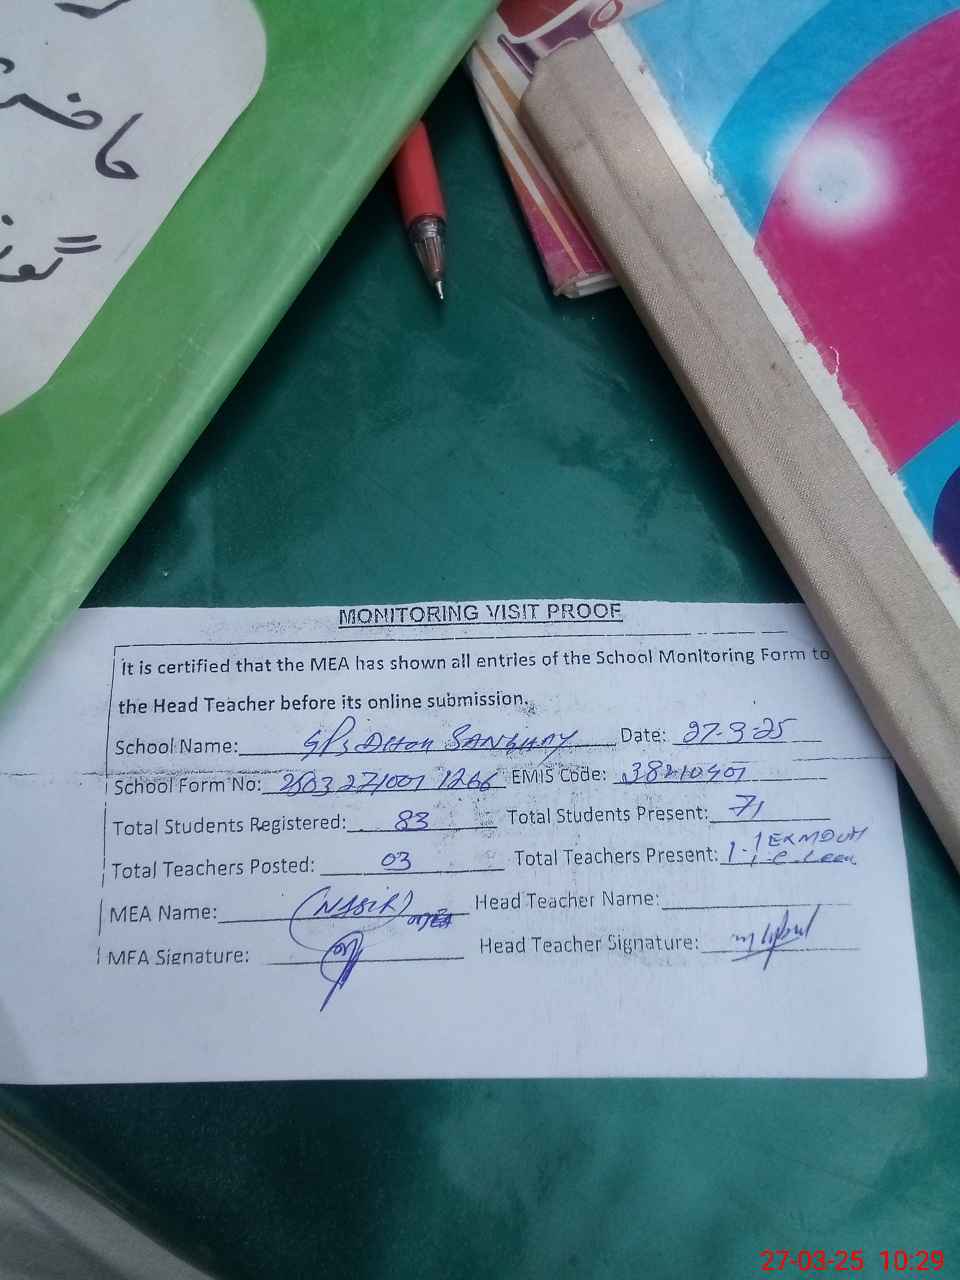 حاضر
MONITORING VISIT PROOF
It is certified that the MEA has shown all entries of the School Monitoring Form to
the Head Teacher before its online submission.
School Name: GPS Date: 27-3-25
School Form No: EMIS Code: 38210401
Total Students Registered: 83 Total Students Present: 71
Total Teachers Posted: 03 Total Teachers Present:
MEA Name: (NASIR) Head Teacher Name:
MEA Signature: Head Teacher Signature:
27-03-25 10:29